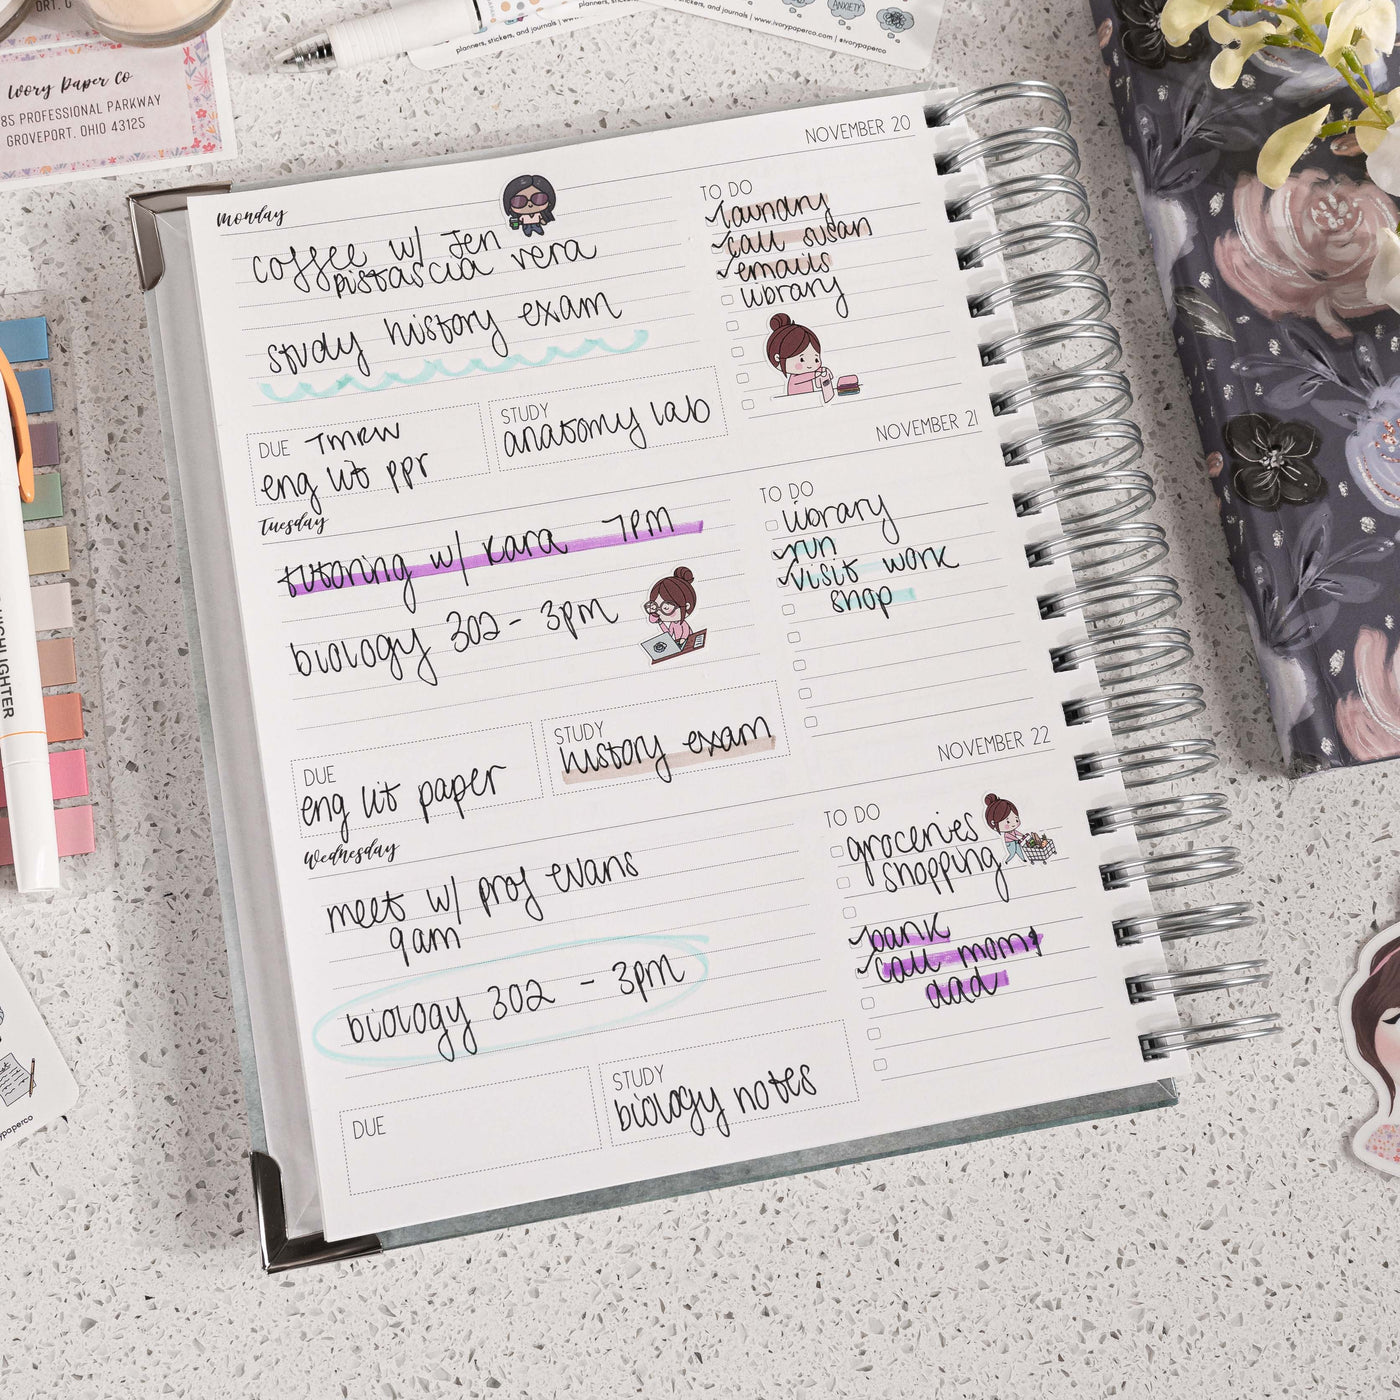 ORT. O
planners, stickers, and journals | www.ivory
planners, stickers, and journals | www.ivorypaperco.com | @ivorypaperco
ANXIETY
Ivory Paper Co
85 PROFESSIONAL PARKWAY
GROVEPORT, OHIO 43125
HIGHLIGHTER
NOVEMBER 20
Monday
coffee w/ Jen
pistascia vera
study history exam
DUE TMRW
eng lit ppr
STUDY
anatomy lab
TO DO
laundry
call susan
emails
library
NOVEMBER 21
Tuesday
tutoring w/ kara 7PM
biology 302 - 3pm
DUE
eng lit paper
STUDY
history exam
TO DO
library
run
visit work
shop
NOVEMBER 22
Wednesday
meet w/ prof evans
9am
biology 302 - 3pm
DUE
STUDY
biology notes
TO DO
groceries
shopping
bank
call mom &
dad
ypaperco